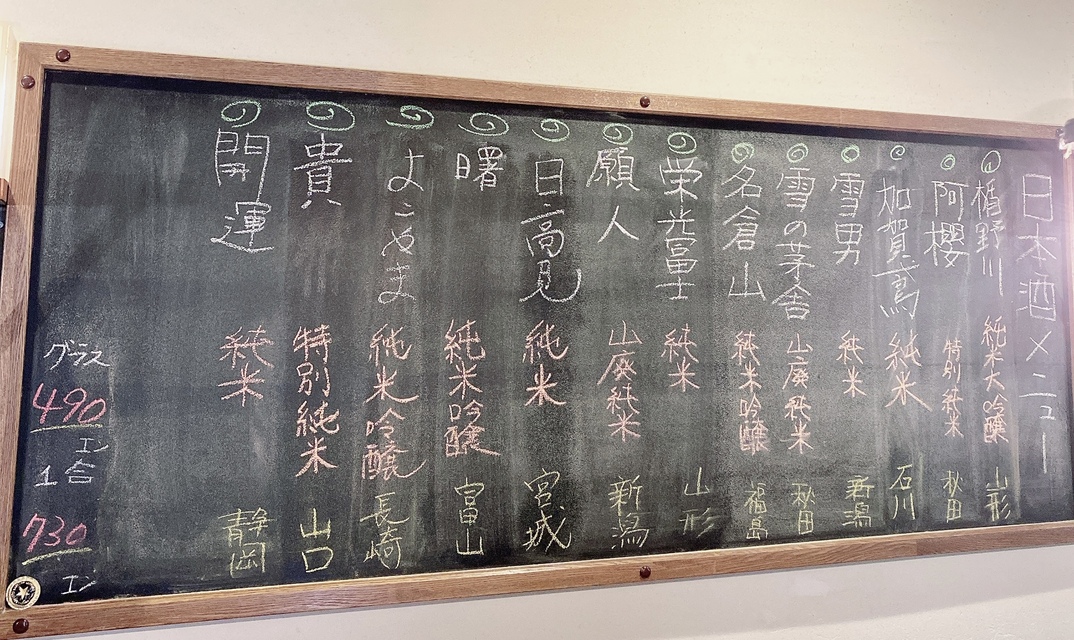 日本酒メニュー
楯野川 純米大吟醸 山形
阿櫻 特別純米 秋田
加賀鳶 純米 石川
雪男 純米 新潟
雪の茅舎 山廃純米 秋田
名倉山 純米吟醸 福島
栄光冨士 純米 山形
願人 山廃純米 新潟
日高見 純米 宮城
曙 純米吟醸 富山
よこやま 純米吟醸 長崎
貴 特別純米 山口
開運 純米 静岡
グラス
490
エン
1合
730
エン